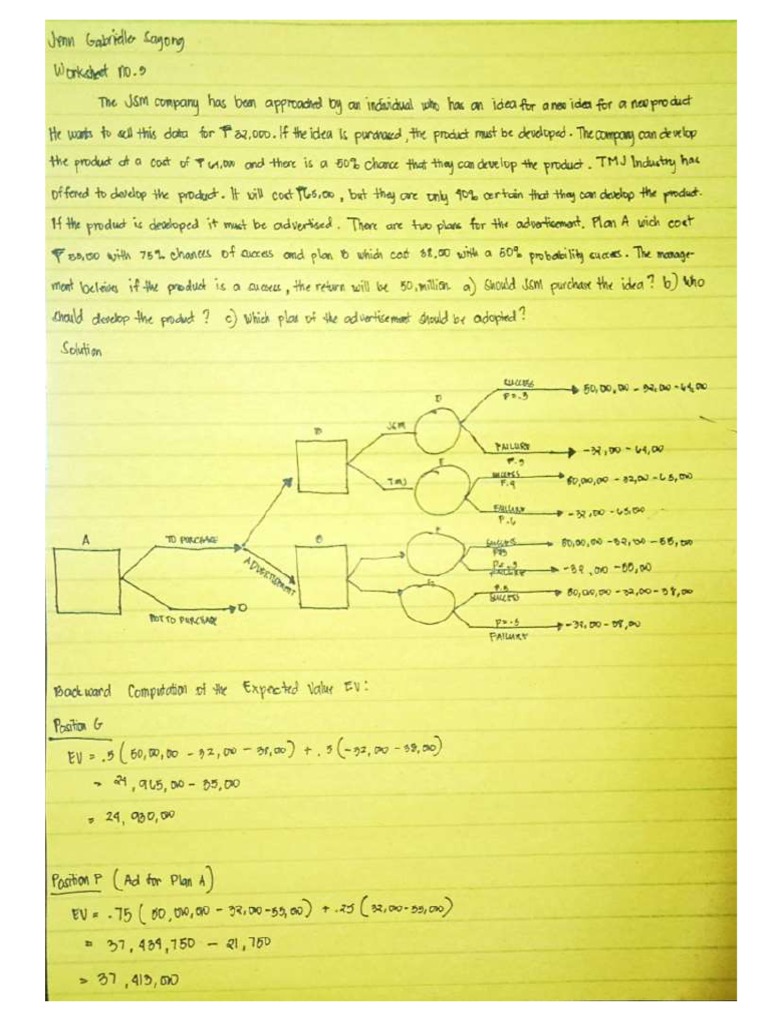 Jenn Gabrielle Sayong
Worksheet no. 5
The J&M company has been approached by an individual who has an idea for a new idea for a new product
He wants to sell this data for ₱32,000. If the idea is purchased, the product must be developed. The company can develop
the product at a cost of ₱64,00 and there is a 50% chance that they can develop the product. TMJ Industry has
offered to develop the product. It will cost ₱65,00, but they are only 40% certain that they can develop the product.
If the product is developed it must be advertised. There are two plans for the advertisement. Plan A wich cost
₱55,00 with 75% chances of success and plan B which cost 38,00 with a 50% probability success. The manage-
ment beleives if the product is a success, the return will be 50, million a) Should J&M purchase the idea? b) Who
should develop the product? c) Which plan of the advertisement should be adopted?
Solution
SUCCESS
P=.5
50,00,00 - 32,00 - 64,00
D
J&M
B
FAILURE
P.5
-32,00 - 64,00
E
SUCCESS
P.4
50,00,00 - 32,00 - 65,00
TMJ
FAILURE
P.6
-32,00 - 65,00
A
TO PURCHASE
ADVERTISEMENT
F
SUCCESS
50,00,00 - 32,00 - 55,00
FAILURE
-32,00 - 55,00
G
P.5
SUCCESS
50,00,00 - 32,00 - 38,00
NOT TO PURCHASE
0
P=.5
FAILURE
-32,00 - 38,00
Backward Computation of the Expected Value EV:
Position G
EV = .5 (50,00,00 - 32,00 - 38,00) + .5 (-32,00 - 38,00)
= 24,965,00 - 35,00
= 24,930,00
Position F (Ad for Plan A)
EV = .75 (50,00,00 - 32,00 - 55,00) + .25 (32,00 - 55,00)
= 37,434,750 - 21,750
= 37,413,00